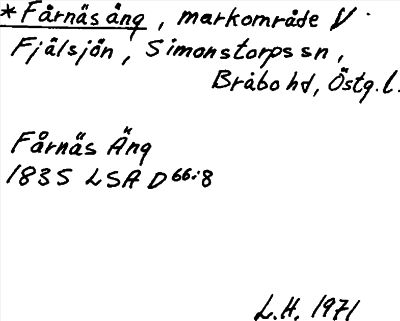 *Fårnäs äng, markområde V
Fjälsjön, Simonstorps sn,
Bråbo hd, Östg.l.
Fårnäs Äng
1835 LSA D 66:8
L.H. 1971